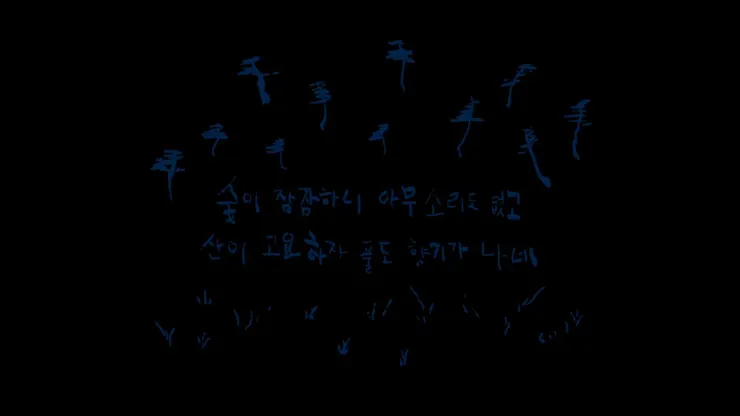 숲이 잠잠하니 아무 소리도 없고
산이 고요하자 풀도 향기가 나네